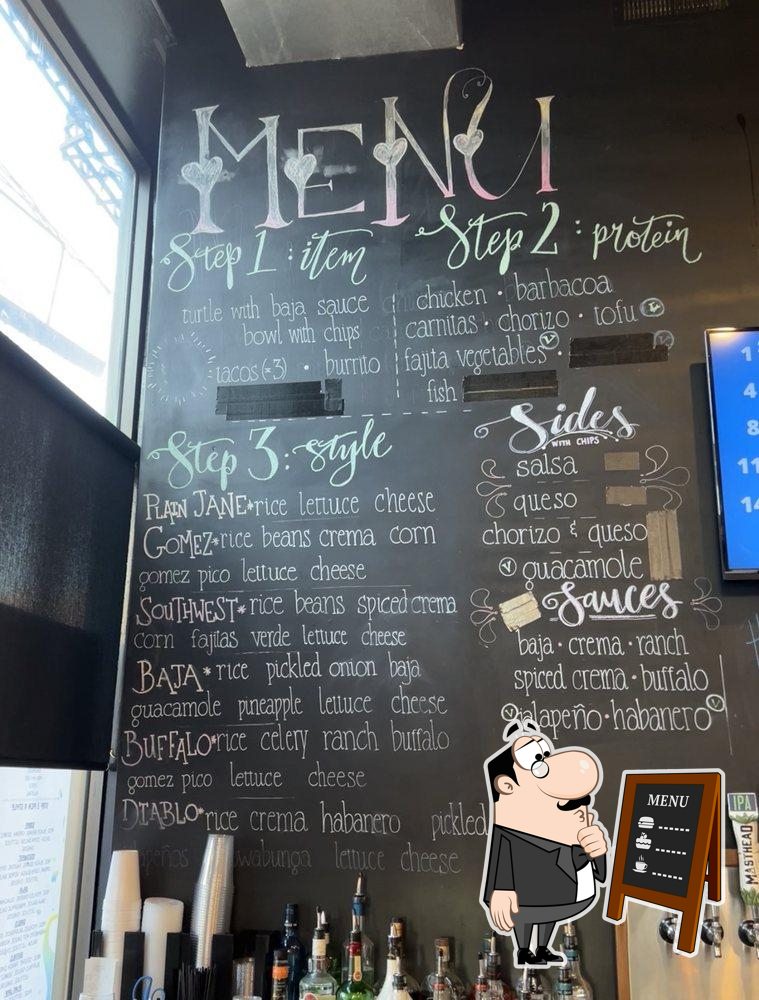 MENU
Step 1: item
turtle with baja sauce
bowl with chips
tacos (x3) • burrito
Step 2: protein
chicken • barbacoa
carnitas • chorizo • tofu V
fajita vegetables V
fish
Step 3: style
PLAIN JANE* rice lettuce cheese
GOMEZ* rice beans crema corn
gomez pico lettuce cheese
SOUTHWEST* rice beans spiced crema
corn fajitas verde lettuce cheese
BAJA* rice pickled onion baja
guacamole pineapple lettuce cheese
BUFFALO* rice celery ranch buffalo
gomez pico lettuce cheese
DIABLO* rice crema habanero pickled
lettuce cheese
Sides
WITH CHIPS
salsa
queso
chorizo & queso
V guacamole
Sauces
baja • crema • ranch
spiced crema • buffalo
V jalapeño • habanero V
1
4
8
11
14
MENU
IPA
MASTHEAD